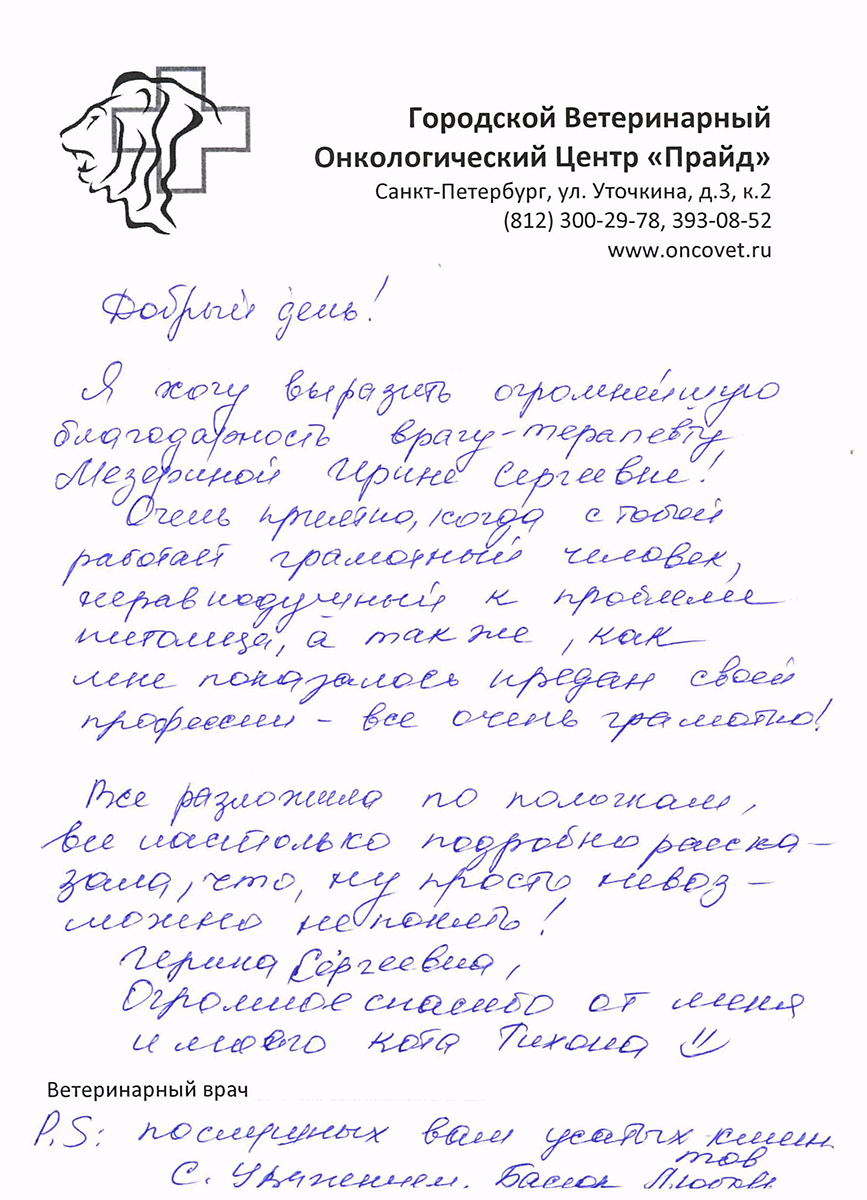 Городской Ветеринарный
Онкологический Центр «Прайд»
Санкт-Петербург, ул. Уточкина, д.3, к.2
(812) 300-29-78, 393-08-52
www.oncovet.ru
Добрый день!
Я хочу выразить огромнейшую
благодарность врачу-терапевту
Мезериной Ирине Сергеевне!
Очень приятно, когда с тобой
работает грамотный человек,
неравнодушный к проблеме
питомца, а также, как
мне показалось предан своей
профессии - все очень грамотно!
Все разложила по полочкам,
все настолько подробно расска-
зала, что, ну просто невоз-
можно не понять!
Ирина Сергеевна,
Огромное спасибо от меня
и моего кота Тихона
Ветеринарный врач
P.S: послушных вам усатых клиен
тов
С. Уважением. Любовь